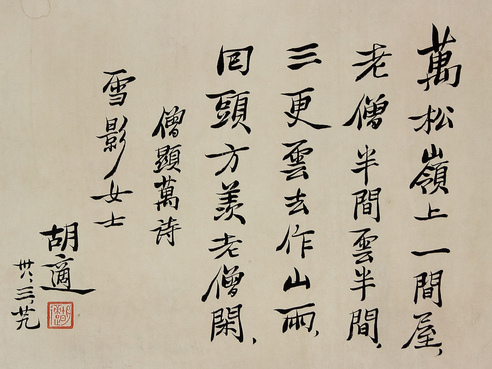 萬松嶺上一間屋，
老僧半間雲半間，
三更雲去作山雨，
回頭方羨老僧閑，
僧顯萬詩
雪影女士
胡適
卅、三、廿九